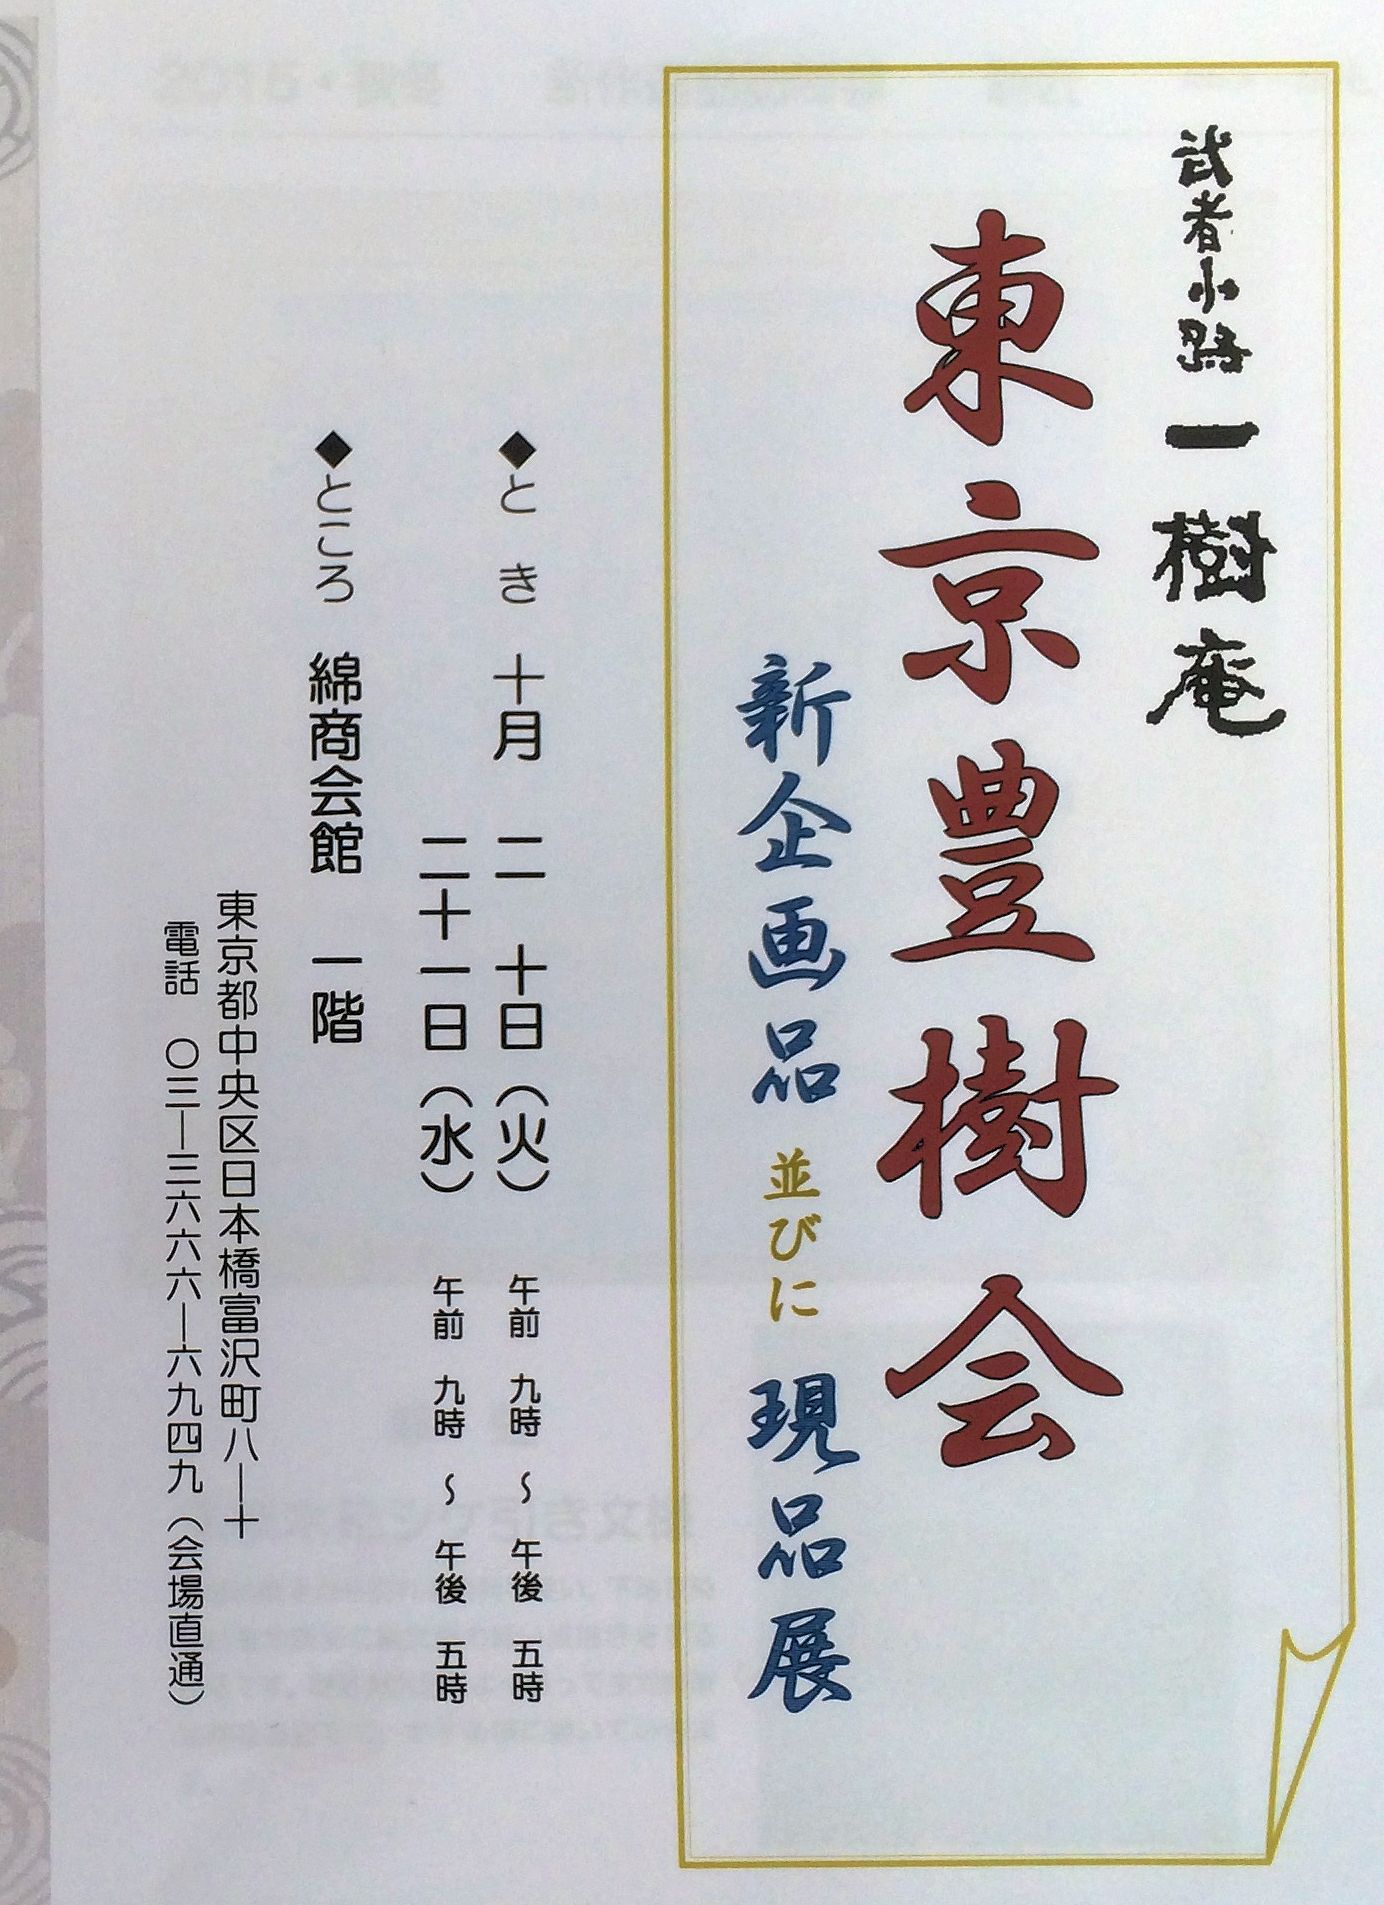 武者小路 一樹庵
東京豊樹会
新企画品 並びに 現品展
◆とき 十月 二十日(火) 午前 九時 ~ 午後 五時
二十一日(水) 午前 九時 ~ 午後 五時
◆ところ 綿商会館 一階
東京都中央区日本橋富沢町八―十
電話 〇三―三六六六―六九四九(会場直通)